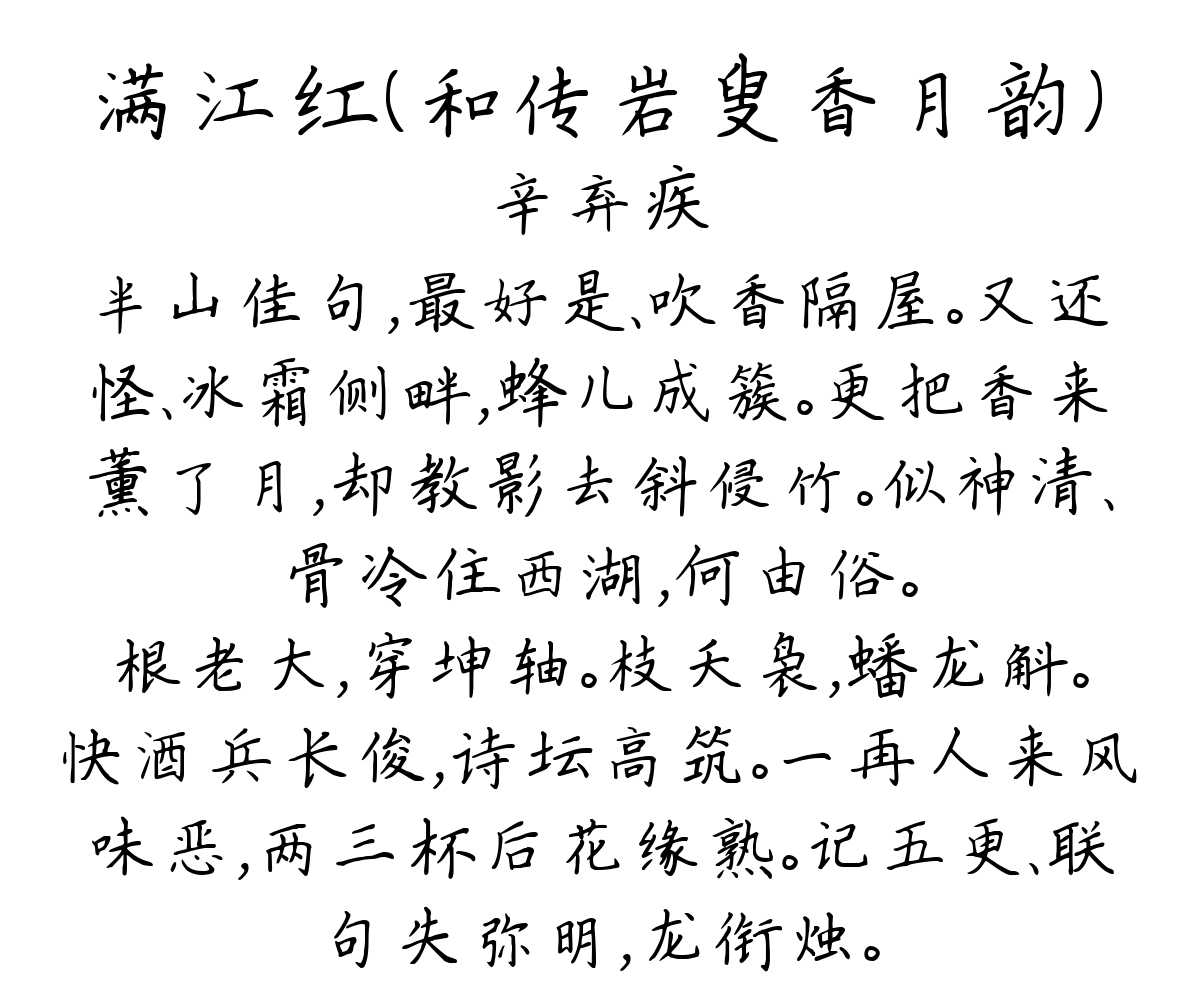 满江红(和传岩叟香月韵)
辛弃疾
半山佳句,最好是、吹香隔屋。又还
怪、冰霜侧畔,蜂儿成簇。更把香来
薰了月,却教影去斜侵竹。似神清、
骨冷住西湖,何由俗。
根老大,穿坤轴。枝夭袅,蟠龙斛。
快酒兵长俊,诗坛高筑。一再人来风
味恶,两三杯后花缘熟。记五更、联
句失弥明,龙衔烛。